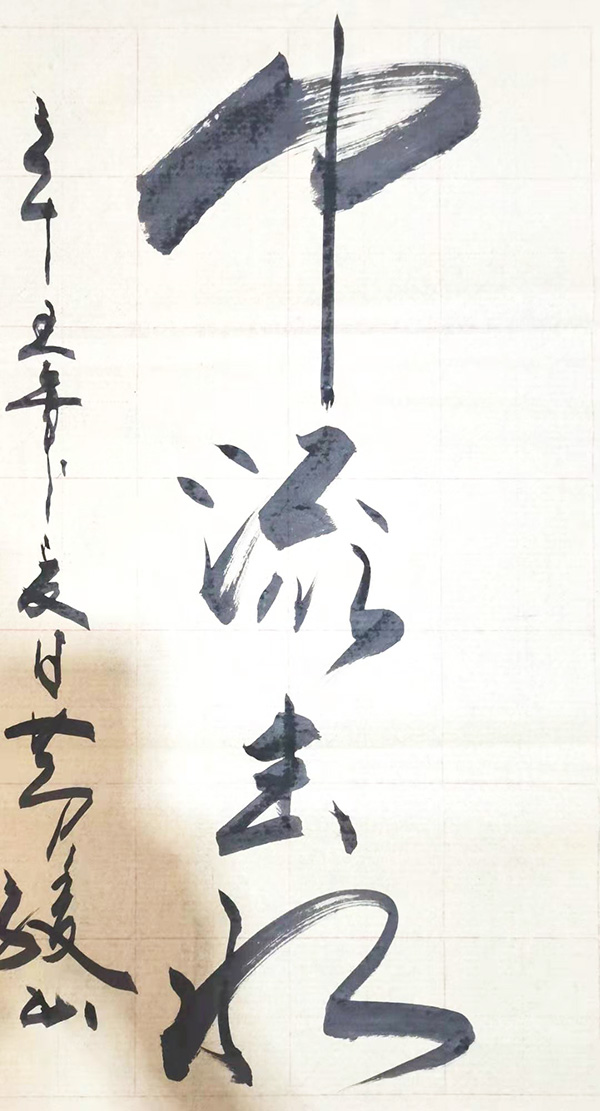 中流击水
辛丑年夏日山